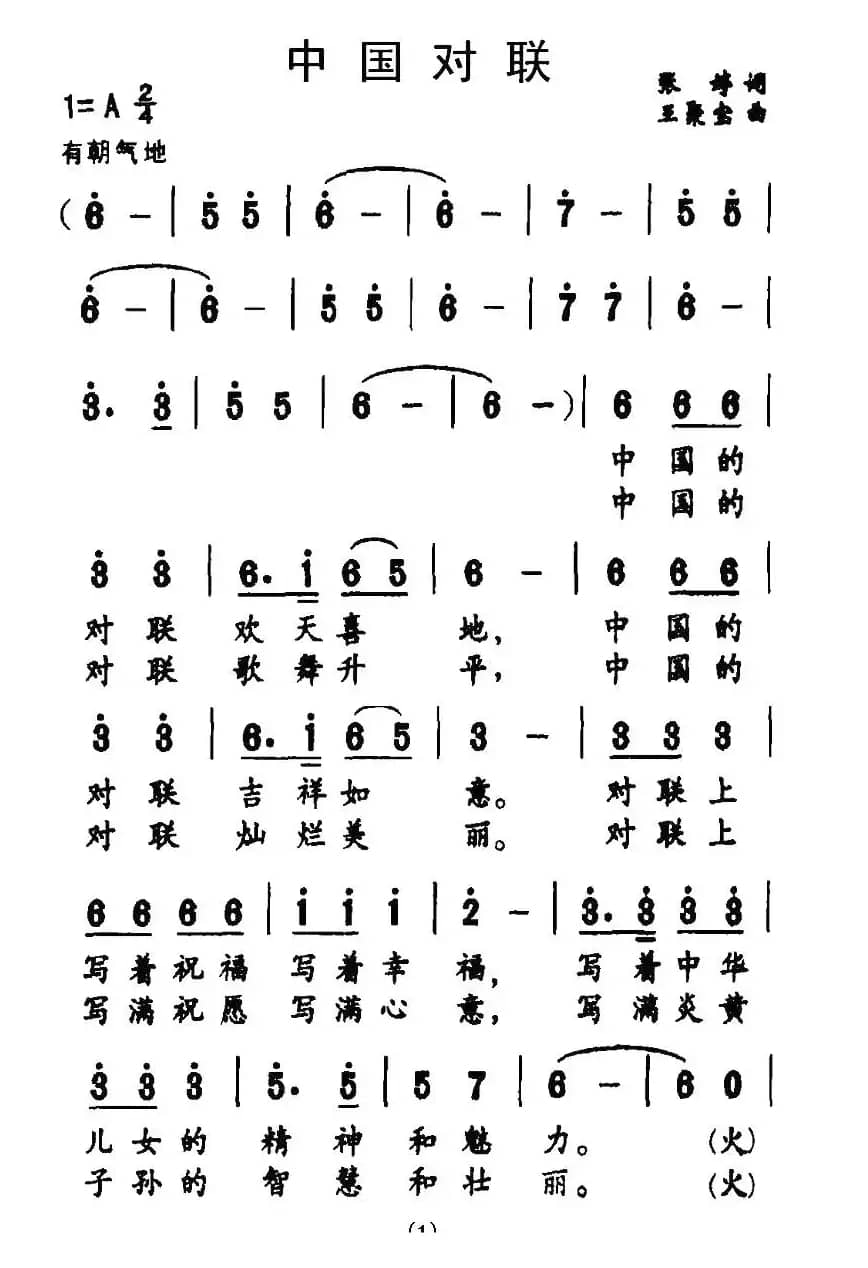 中国对联
张婷词
1=A 2/4
王聚宝曲
有朝气地
(6̇ - | 5̇ 5̇ | 6̇ - | 6̇ - | 7̇ - | 5̇ 5̇ |
6̇ - | 6̇ - | 5̇ 5̇ | 6̇ - | 7̇ 7̇ | 6̇ - |
3̇. 3̇ | 5̇ 5 | 6 - | 6 -) | 6 6 6 |
中国的
中国的
3̇ 3̇ | 6. i̇ 6 5 | 6 - | 6 6 6 |
对联 欢天喜 地, 中国的
对联 歌舞升 平, 中国的
3̇ 3̇ | 6. i̇ 6 5 | 3 - | 3 3 3 |
对联 吉祥如 意。 对联上
对联 灿烂美 丽。 对联上
6 6 6 6 | i̇ i̇ i̇ | 2̇ - | 3̇. 3̇ 3̇ 3̇ |
写着祝福 写着幸 福, 写着中华
写满祝愿 写满心 意, 写满炎黄
3̇ 3̇ 3̇ | 5̇. 5̇ | 5 7 | 6 - | 6 0 |
儿女的 精神和魅 力。 (火)
子孙的 智慧和壮 丽。 (火)
(1)